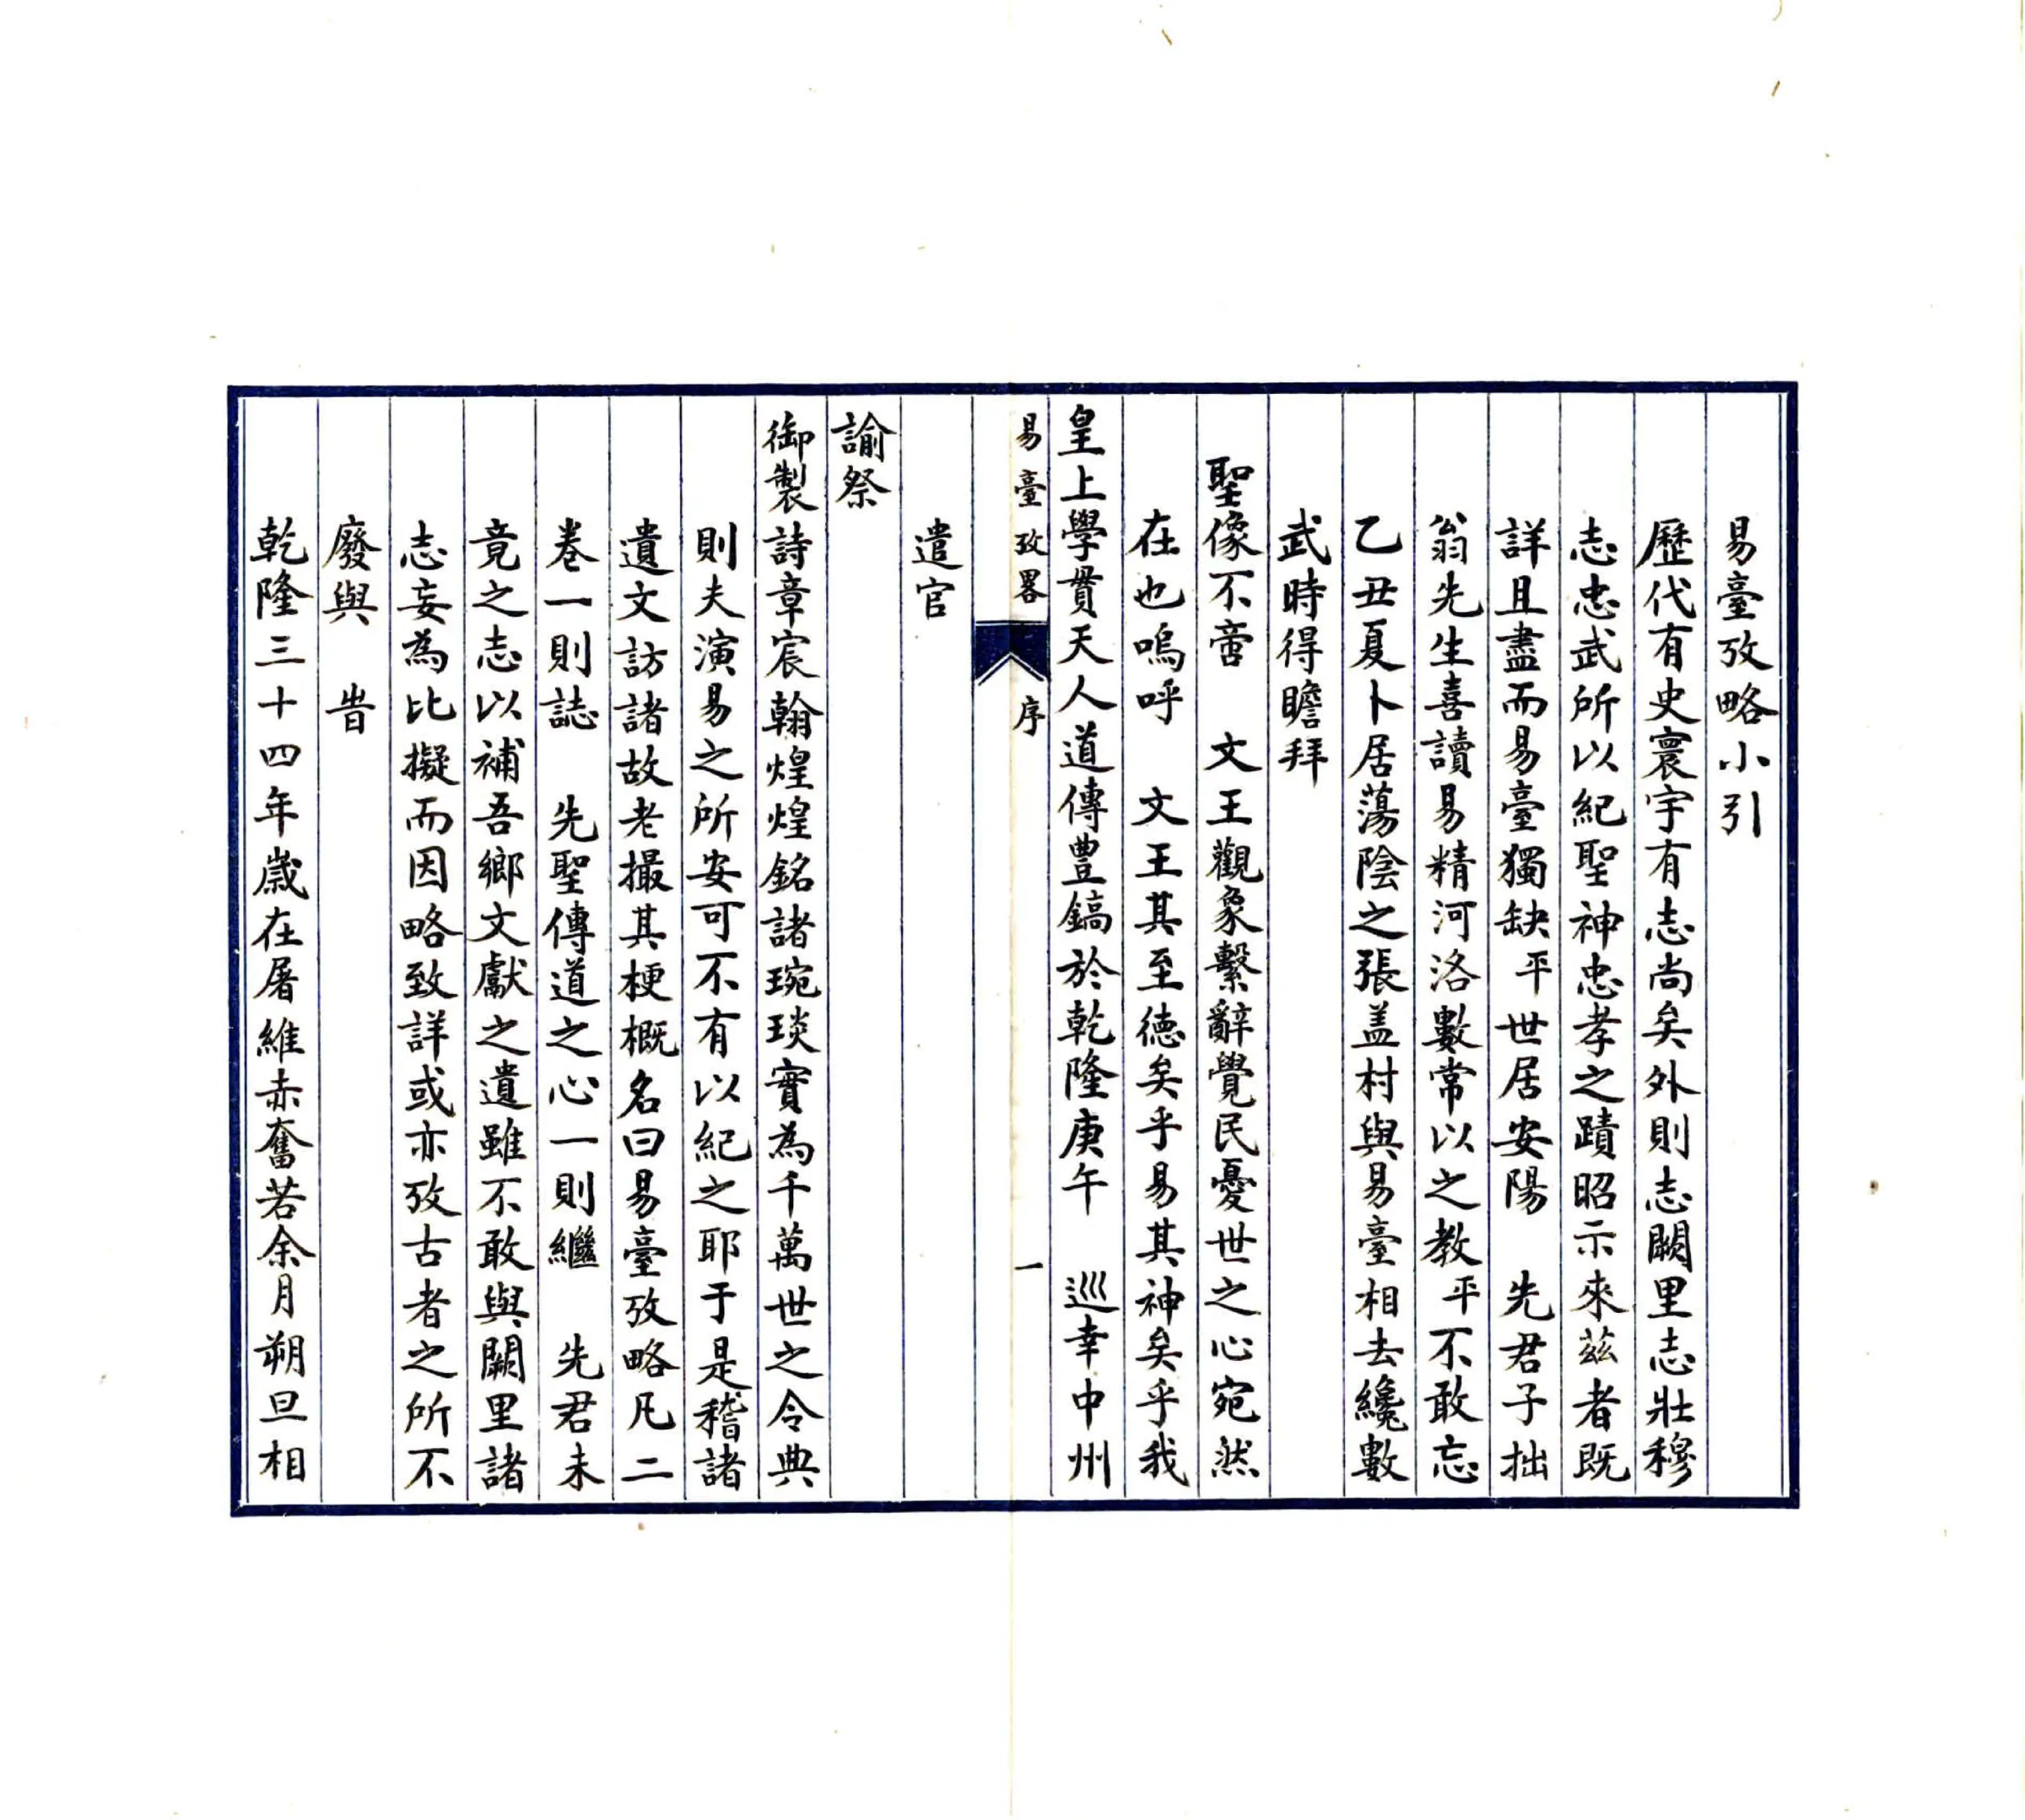 易臺攷略小引
歷代有史寰宇有志尚矣外則志闕里志壯穆
志忠武所以紀聖神忠孝之蹟昭示來茲者既
詳且盡而易臺獨缺平世居安陽　先君子拙
翁先生喜讀易精河洛數常以之教平不敢忘
乙丑夏卜居蕩陰之張盖村與易臺相去纔數
武時得瞻拜
聖像不啻　文王觀象繫辭覺民憂世之心宛然
在也嗚呼　文王其至德矣乎易其神矣乎我
皇上學貫天人道傳豊鎬於乾隆庚午　巡幸中州
易臺攷畧　序　一
遣官
諭祭
御製詩章宸翰煌煌銘諸琬琰實為千萬世之令典
則夫演易之所安可不有以紀之耶于是稽諸
遺文訪諸故老撮其梗概名曰易臺攷略凡二
卷一則誌　先聖傳道之心一則繼　先君未
竟之志以補吾鄉文獻之遺雖不敢與闕里諸
志妄為比擬而因略致詳或亦攷古者之所不
廢與　旹
乾隆三十四年歲在屠維赤奮若余月朔旦相